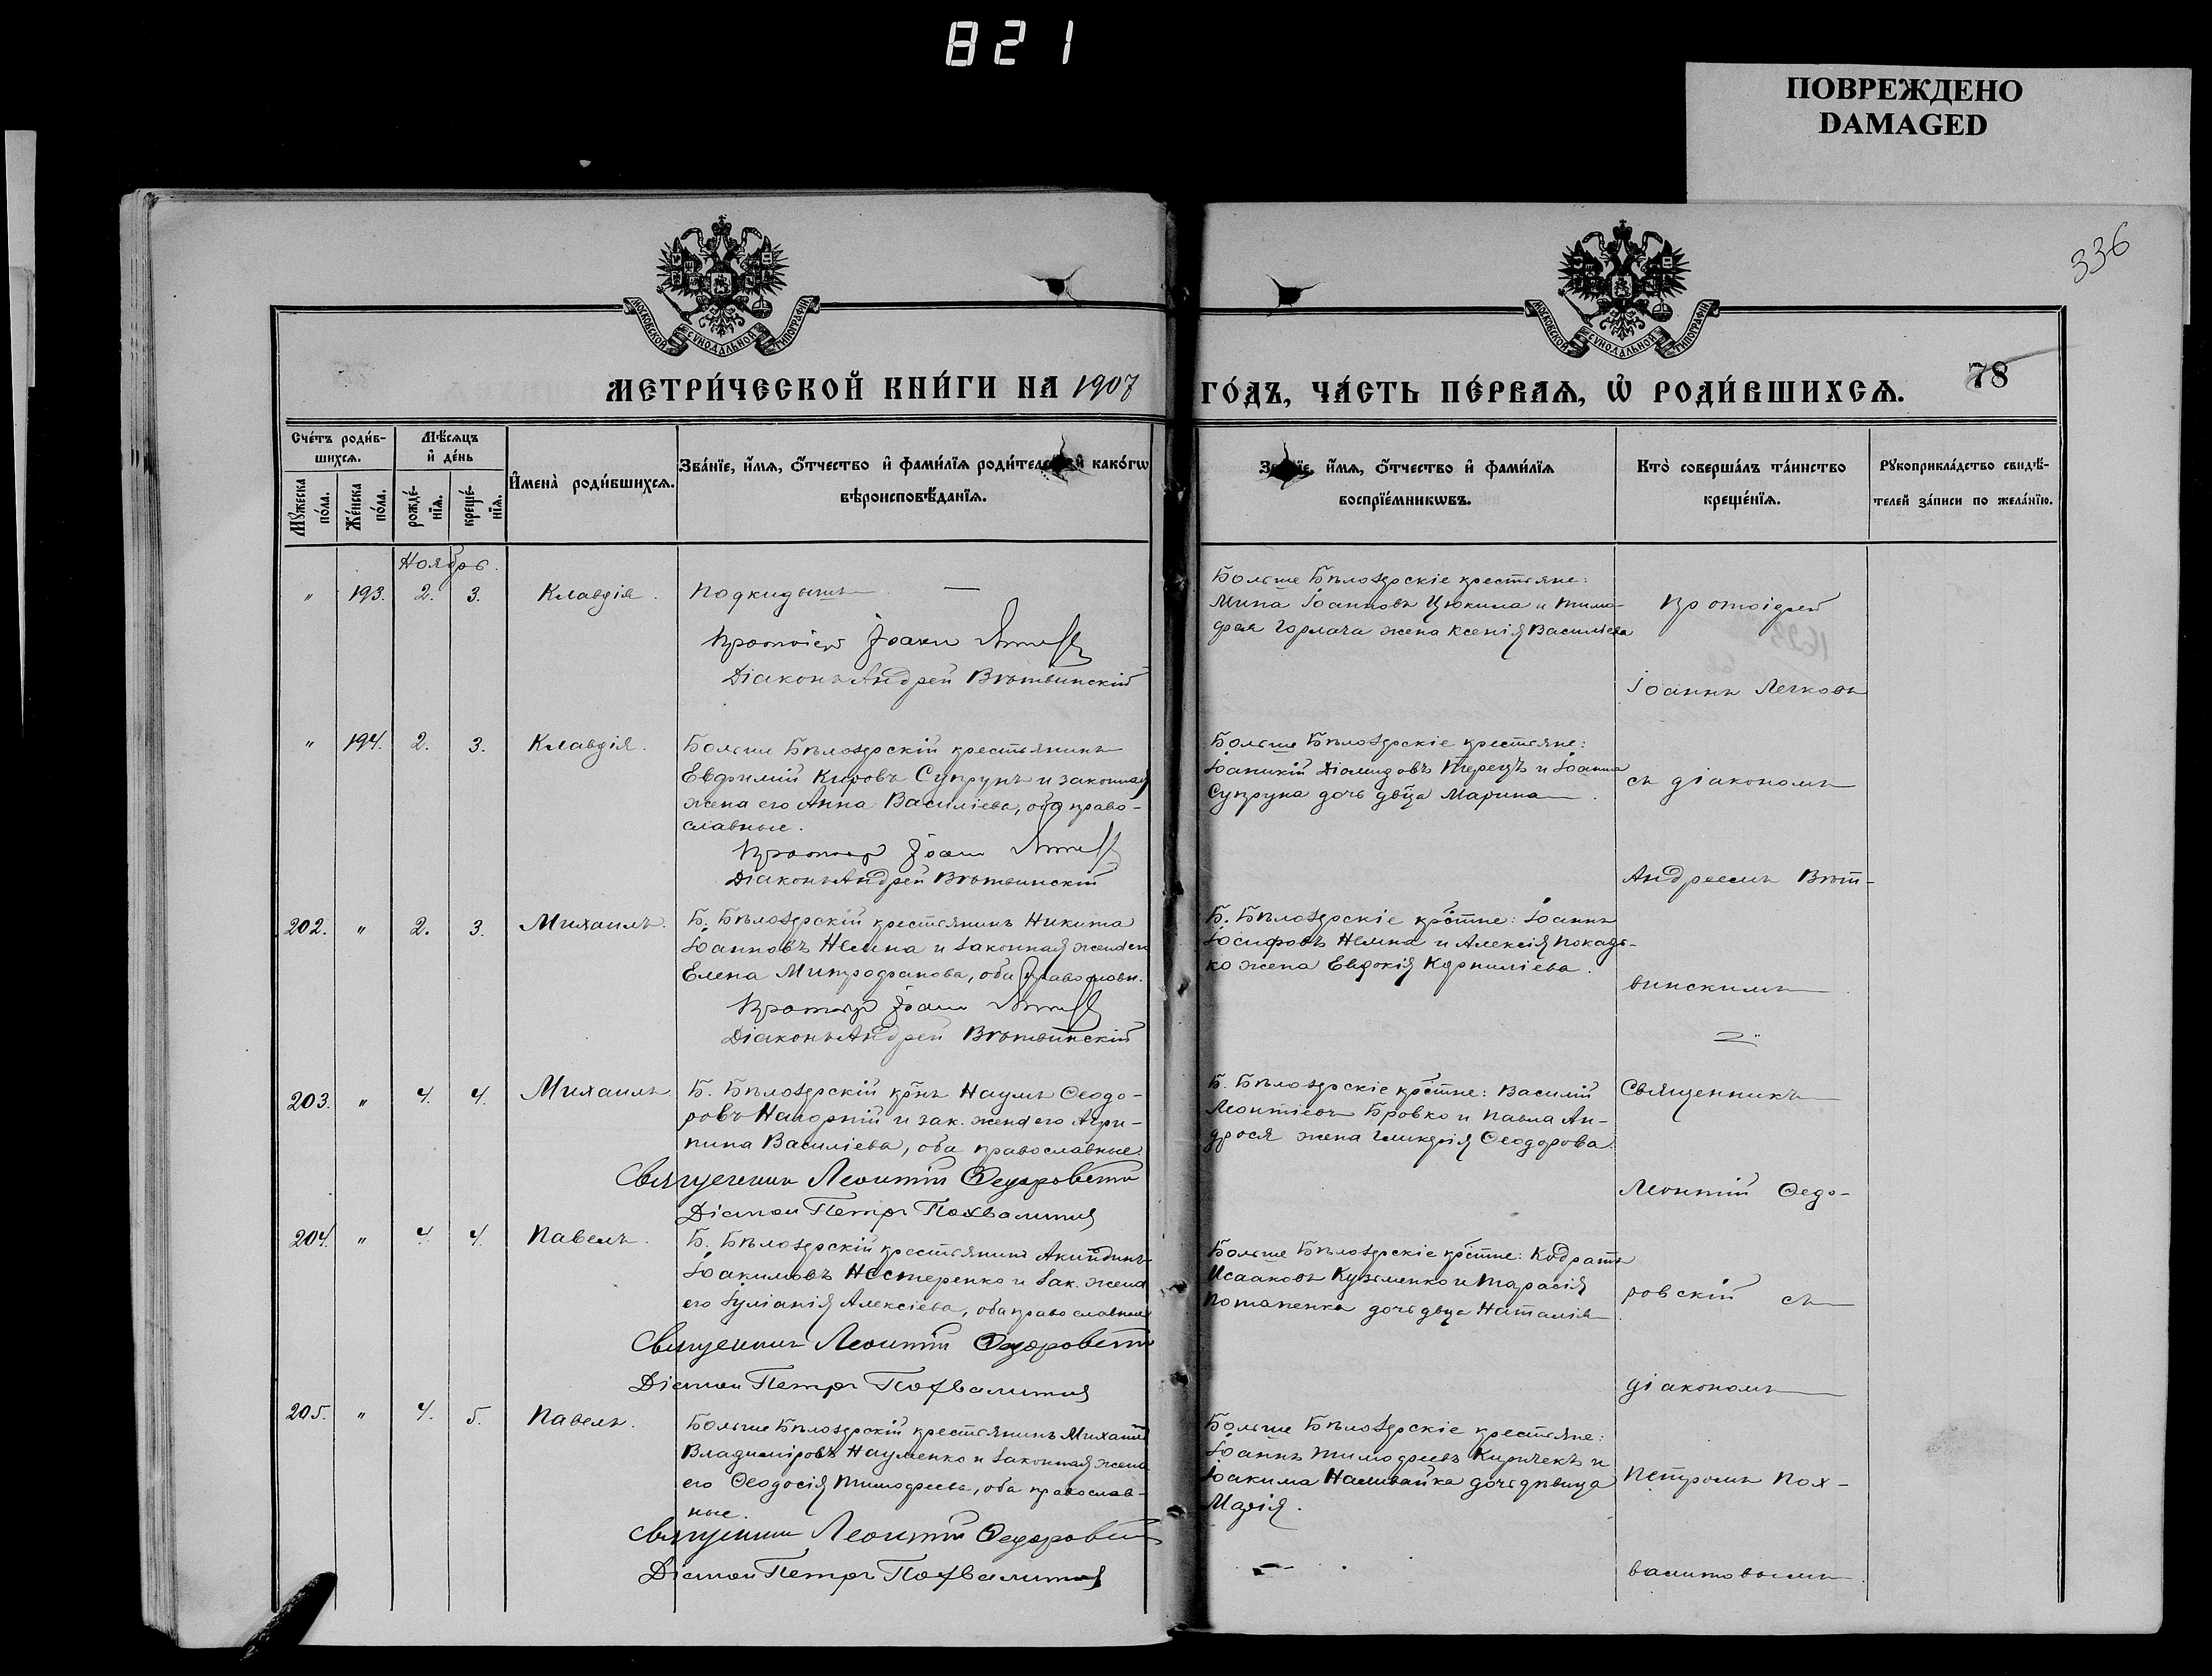 821
ПОВРЕЖДЕНО
DAMAGED
336
МОСКОВСКОЙ СѴНОДАЛЬНОЙ ТИПОГРАФІИ
МОСКОВСКОЙ СѴНОДАЛЬНОЙ ТИПОГРАФІИ
МЕТРИ́ЧЕСКОЙ КНИ́ГИ НА 1907 ГО́ДЪ, ЧА́СТЬ ПЕ́РВАѦ, Ѡ҆ РОДИ́ВШИХСѦ. 78
Сче́тъ роди́в-
шихсѧ.
Мѣ́сѧцъ
и҆ де́нь
Мꙋ́жеска
по́ла.
Же́нска
по́ла.
рожде́-
нїѧ.
креще́-
нїѧ.
И҆мена̀ роди́вшихсѧ.
Зва́нїе, и҆́мѧ, ѻ҆́тчество и҆ фами́лїѧ роди́телей и҆ како́гѡ
вѣроисповѣ́данїѧ.
и҆́мѧ, ѻ҆́тчество и҆ фами́лїѧ
воспрїе́мникѡвъ.
Кто̀ соверша́лъ та́инство
креще́нїѧ.
Рꙋкоприкла́дство свидѣ́-
телей за́писи по жела́нїю.
Ноябрь.
" 193. 2. 3. Клавдія. Подкидышъ —
Протоіер Іоанн
Діаконъ Андрей Вѣтвинскій
Больше Бѣлозерскіе крестьяне:
Мина Іоанновъ Цюкина и Тимо-
фея Горлача жена Ксенія Василіева
Протоіерей
Іоаннъ Легковъ
" 194. 2. 3. Клавдія. Больше Бѣлозерскій крестьянинъ
Евфимій Кировъ Супрунъ и законная
жена его Анна Василіева, оба право-
славные.
Іоанн
Діаконъ Андрей Вѣтвинскій
Больше Бѣлозерскіе крестьяне:
Іоаникій Діомидовъ Терецъ и Іоанна
Супруна дочь двца Марина.
съ діакономъ
Андреемъ Вѣт-
202. " 2. 3. Михаилъ. Б. Бѣлозерскій крестьянинъ Никита
Іоанновъ Немна и законная жена его
Елена Митрофанова, оба православн.
Іоанн
Діаконъ Андрей Вѣтвинскій
Б. Бѣлозерскіе крстне: Іоаннъ
Іосифовъ Немна и Алексія
жена Евдокія Корниліева.
винскимъ
203. " 4. 4. Михаилъ Б. Бѣлозерскій крнъ Наумъ Ѳеодо-
ровъ Нагорній и зак. жена его Агри-
пина Василіева, оба православные.
Священник Леонтій Ѳедоровскій
Діакон Петръ Похвалитов
Б. Бѣлозерскіе крстне: Василій
Леонтіевъ Бровко и Павла Ан-
дрося жена Гликерія Ѳеодорова.
Священникъ
Леонтій Ѳедо-
204. " 4. 4. Павелъ. Б. Бѣлозерскій крестьянинъ Акиндинъ
Іоакимовъ Нестеренко и зак. жена
его Іуліанія Алексіева, оба православные
Священник Леонтій Ѳедоровскій
Діакон Петръ Похвалитов
Больше Бѣлозерскіе крстне: Кодратъ
Исааковъ Кузьменко и Тарасія
Потапенка дочь двца Наталія
ровскій съ
діакономъ
205. " 4. 5. Павелъ. Больше Бѣлозерскій крестьянинъ Михаилъ
Владиміровъ Науменко и законная жена
его Ѳеодосія Тимофеева, оба православ-
ные.
Священник Леонтій Ѳедоровскій
Діакон Петръ Похвалитов
Больше Бѣлозерскіе крестьяне:
Іоаннъ Тимофеевъ Киричекъ и
Іоакима Наливайка дочь дѣвица
Марія.
Петромъ Пох-
валитовымъ.